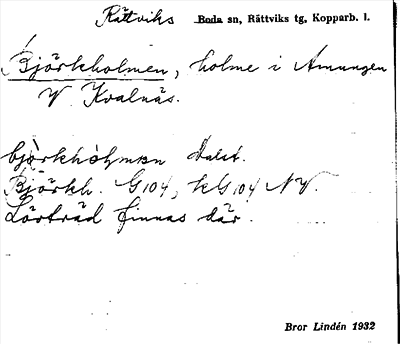 Rättviks Boda sn, Rättviks tg, Kopparb. l.
Björkholmen, holme i Amungen
V Kvalnäs.
bjòrkhòḷmen Dalst.
Björkh. G104, kG104 NV.
Lövträd finnas där.
Bror Lindén 1932